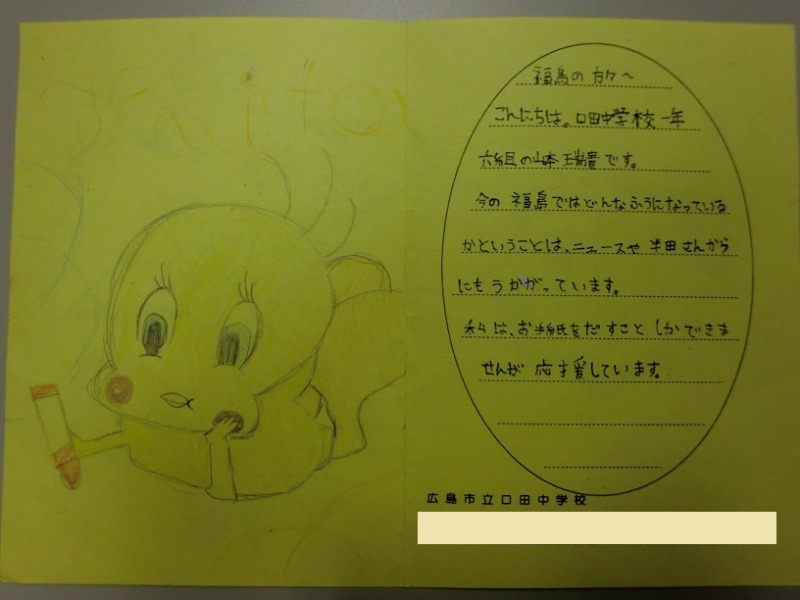 福島の方々へ
こんにちは。口田中学校一年
六組の山本瑞貴です。
今の福島ではどんなふうになっている
かということは、ニュースや半田さんから
にもうかがっています。
私は、お手紙をだすことしかできま
せんが応援しています。
広島市立口田中学校